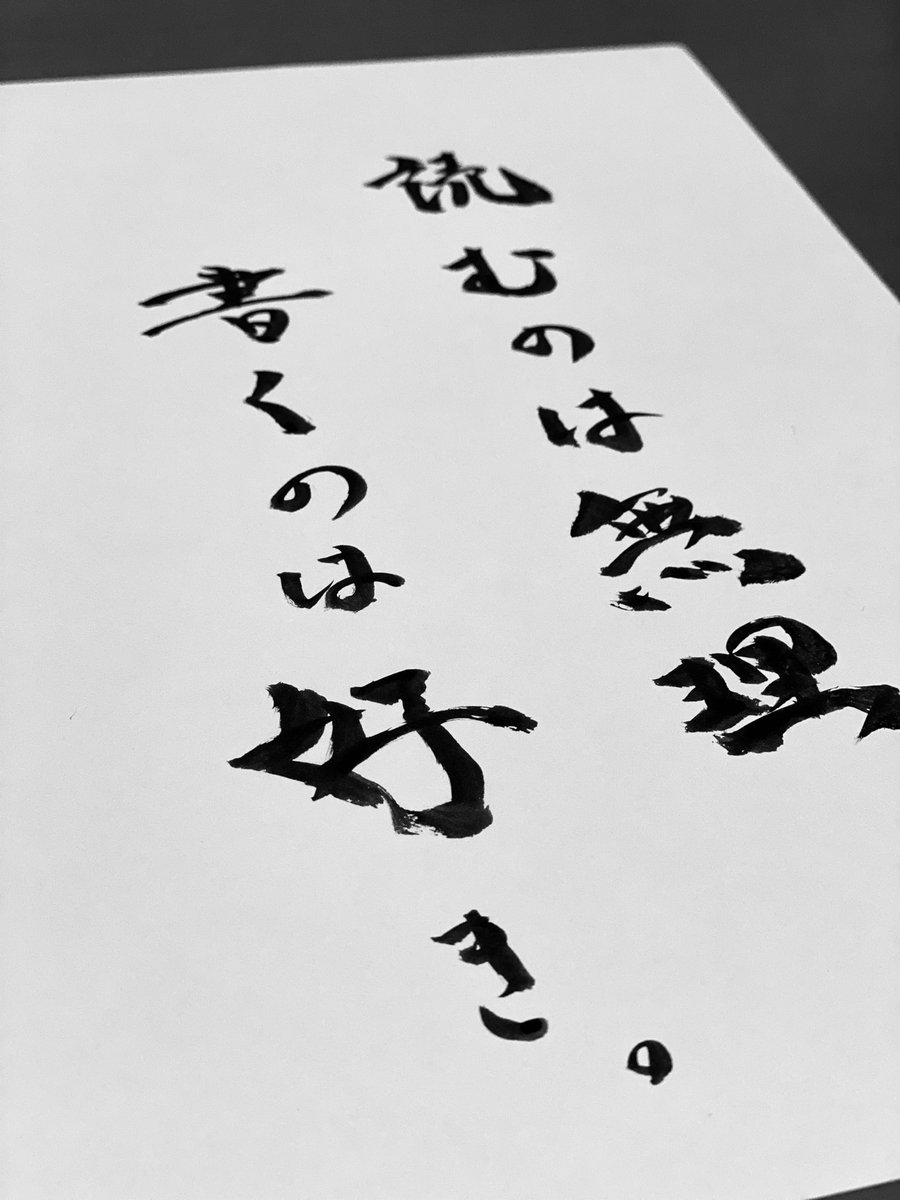 読むのは無理
書くのは好き。